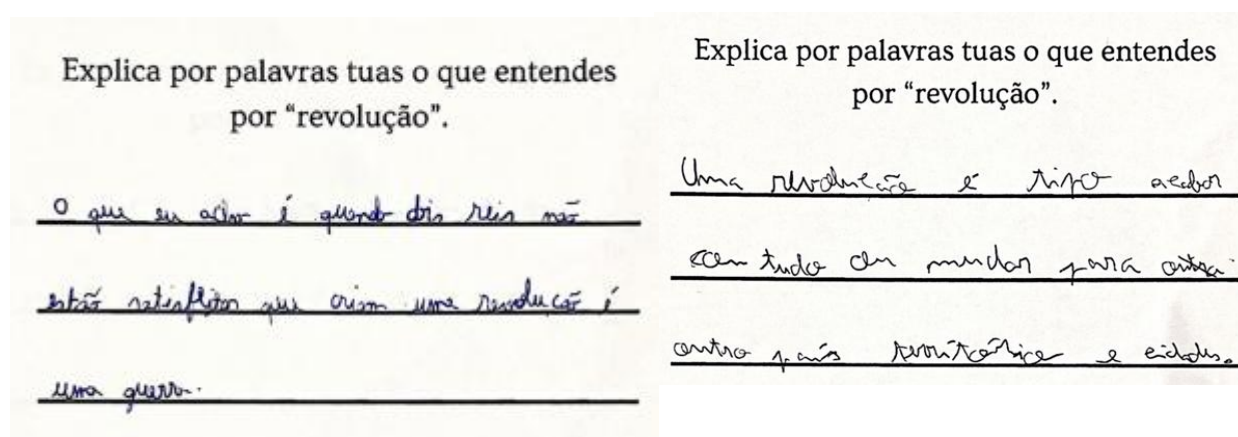 Explica por palavras tuas o que entendes
por “revolução”.
O que eu acho é quando dois reis não
estão satisfeitos que criam uma revolução é
uma guerra.
Explica por palavras tuas o que entendes
por “revolução”.
Uma revolução é tipo acabar
com tudo ou mudar para outra
outro país território e cidades.